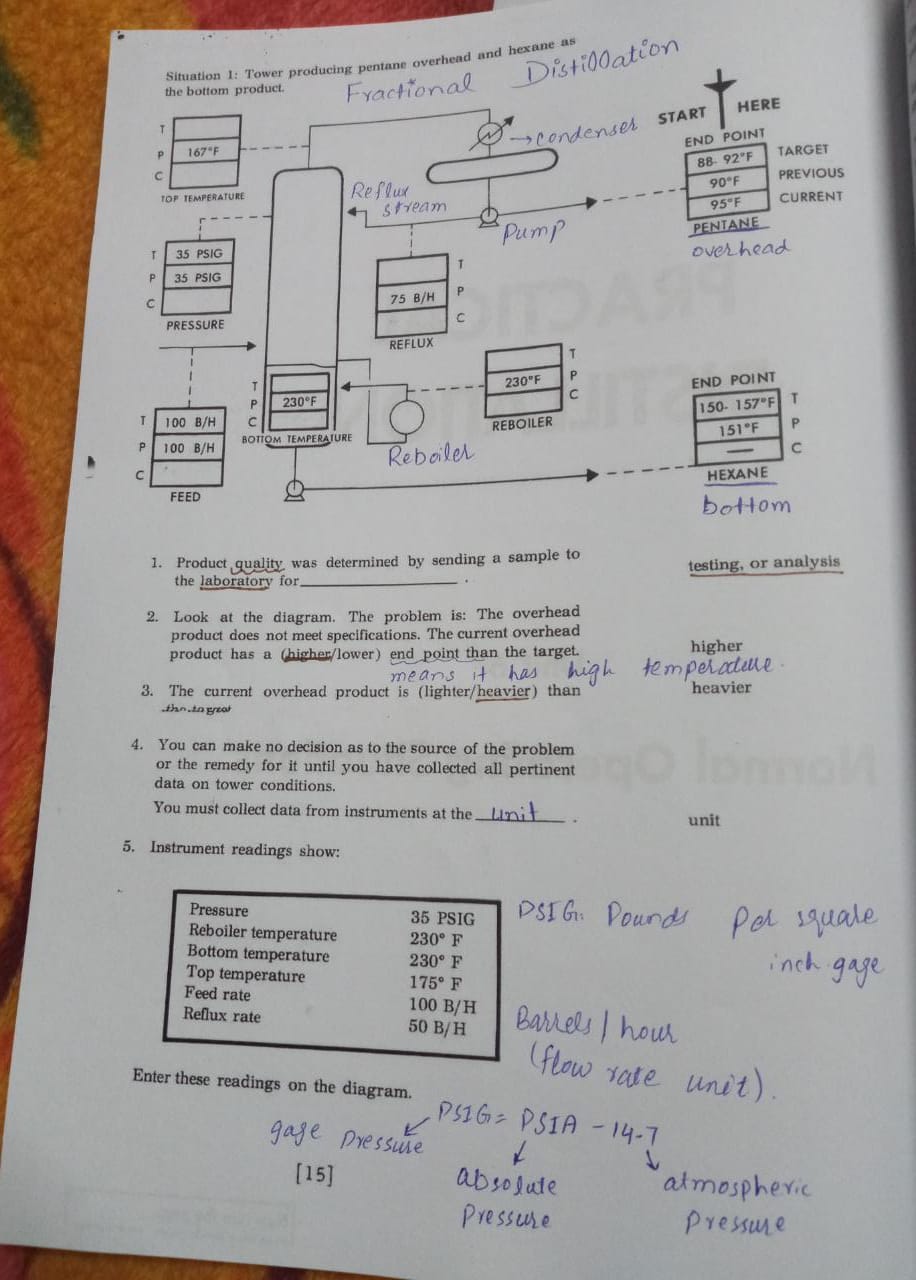 Situation 1: Tower producing pentane overhead and hexane as
the bottom product.
Fractional Distillation
START HERE
T
P 167°F
C
TOP TEMPERATURE
→condenser
END POINT
88- 92°F TARGET
90°F PREVIOUS
95°F CURRENT
PENTANE
overhead
Reflux
stream
Pump
T 35 PSIG
P 35 PSIG
C
PRESSURE
T
75 B/H P
C
REFLUX
T
P 230°F
C
BOTTOM TEMPERATURE
T
230°F P
C
REBOILER
Reboiler
END POINT
150- 157°F T
151°F P
— C
HEXANE
bottom
T 100 B/H
P 100 B/H
C
FEED
1. Product quality was determined by sending a sample to
the laboratory for____________.
testing, or analysis
2. Look at the diagram. The problem is: The overhead
product does not meet specifications. The current overhead
product has a (higher/lower) end point than the target.
higher
means it has high temperature.
3. The current overhead product is (lighter/heavier) than
heavier
4. You can make no decision as to the source of the problem
or the remedy for it until you have collected all pertinent
data on tower conditions.
You must collect data from instruments at the unit.
unit
5. Instrument readings show:
Pressure 35 PSIG
Reboiler temperature 230° F
Bottom temperature 230° F
Top temperature 175° F
Feed rate 100 B/H
Reflux rate 50 B/H
PSIG: Pounds per square
inch gage
Barrels / hour
(flow rate unit).
Enter these readings on the diagram.
PSIG = PSIA - 14.7
gage Pressure
absolute
Pressure
atmospheric
Pressure
[15]